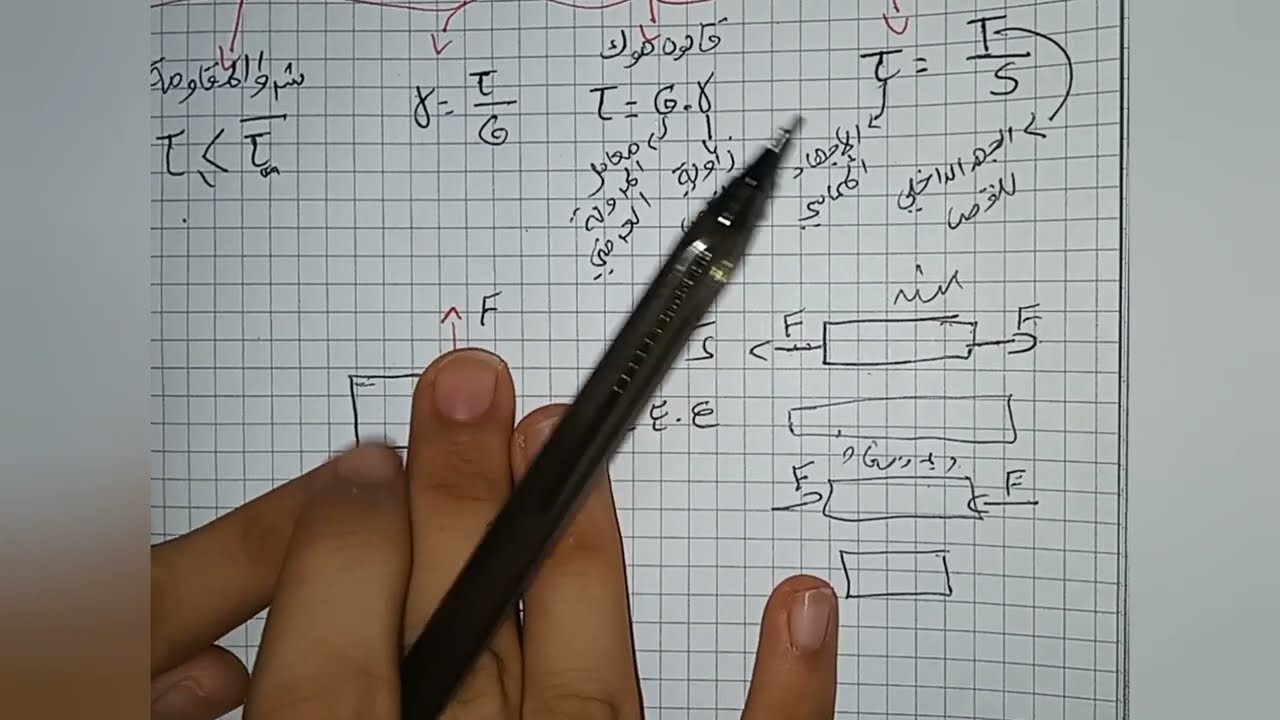 شرط المقاومة
τ < τ̅
γ = τ/G
قانون هوك
τ = G.γ
معامل
المرونة
العرضي
زاوية
τ = T/S
الإجهاد
المماسي
الجهد الداخلي
للقص
F
شد
F F
S
F F